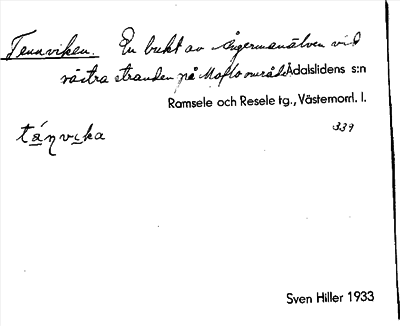 Tennviken. En bukt av Ångermanälven vid
västra stranden på Moflo område Ådalslidens s:n
Ramsele och Resele tg., Västernorrl. l.
tánvika 339
Sven Hiller 1933